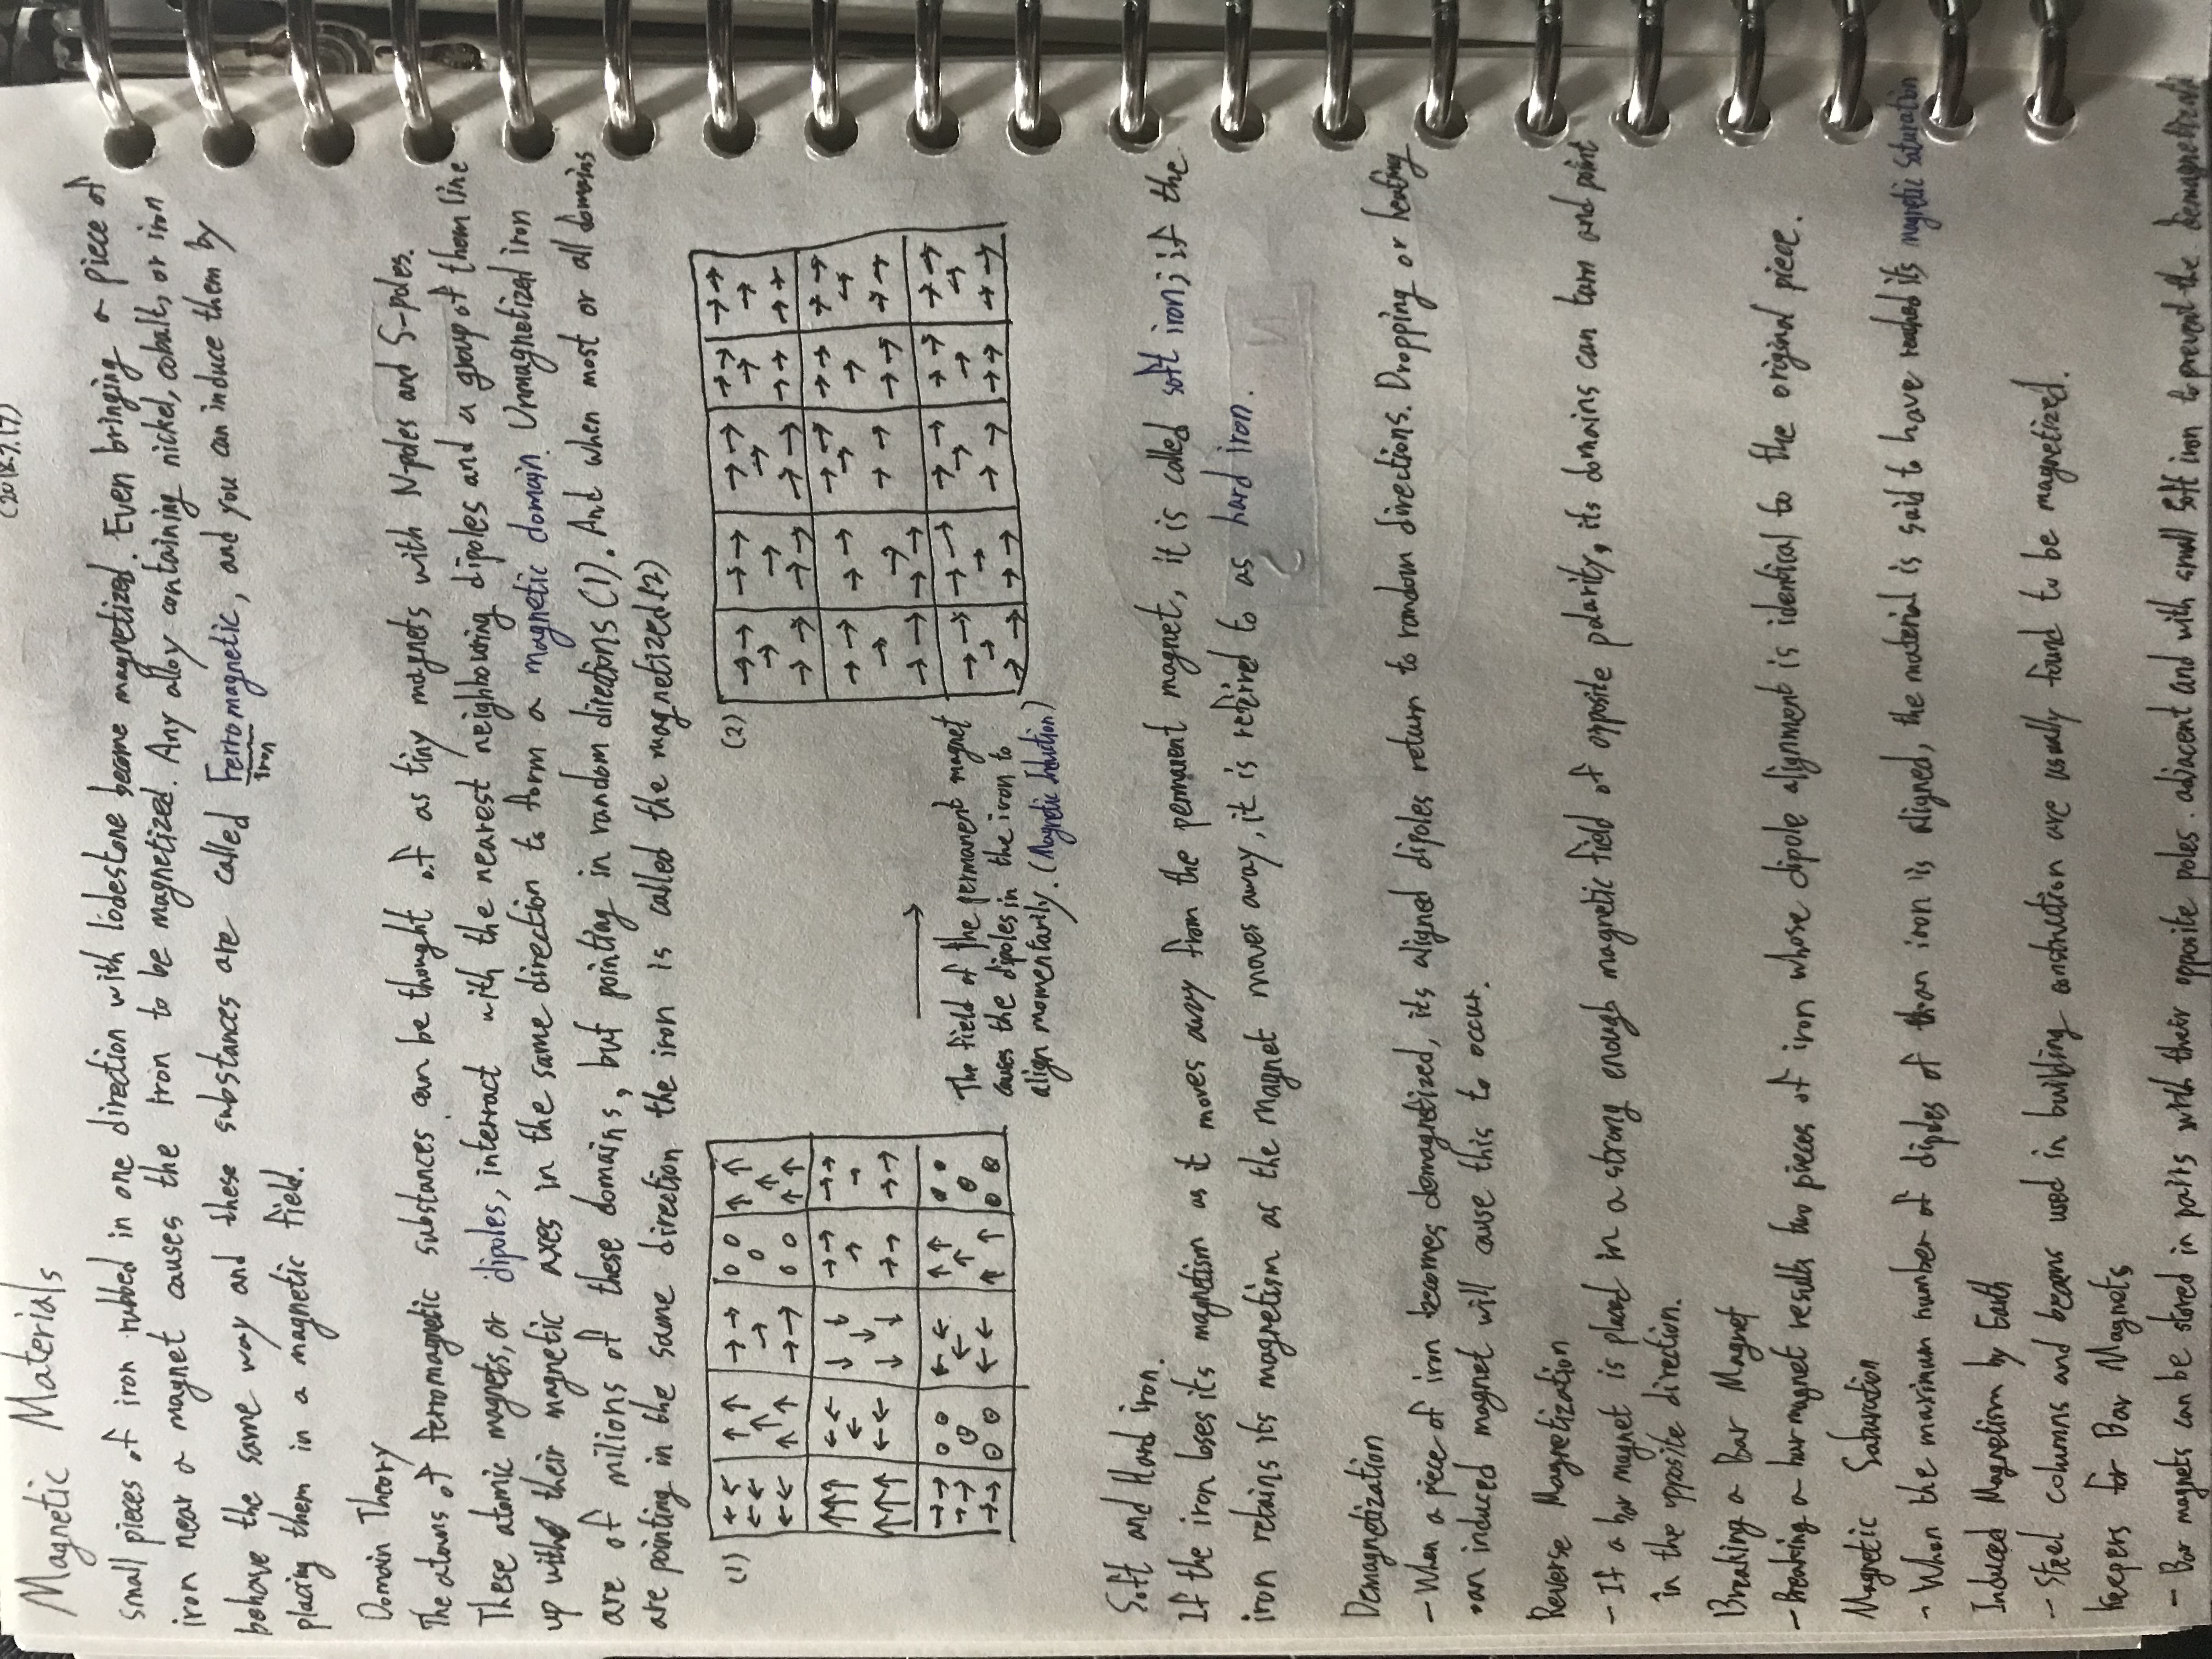 (2018.7.17)
Magnetic Materials
Small pieces of iron rubbed in one direction with lodestone become magnetized. Even bringing a piece of
iron near a magnet causes the iron to be magnetized. Any alloy containing nickel, cobalt, or iron
behave the same way and these substances are called Ferromagnetic, and you can induce them by
iron
placing them in a magnetic field.
Domain Theory
The atoms of ferromagnetic substances can be thought of as tiny magnets with N-poles and S-poles.
These atomic magnets, or dipoles, interact with the nearest neighbouring dipoles and a group of them line
up with their magnetic axes in the same direction to form a magnetic domain. Unmagnetized iron
are of milions of these domains, but pointing in random directions (1). And when most or all domains
are pointing in the same direction the iron is called the magnetized (2)
(1)
(2)
The field of the permanent magnet
causes the dipoles in the iron to
align momentarily. (Magnetic Induction)
Soft and Hard iron.
If the iron loses its magnetism as it moves away from the permanent magnet, it is called soft iron; if the
iron retains its magnetism as the magnet moves away, it is referred to as hard iron.
Demagnetization
- When a piece of iron becomes demagnetized, its aligned dipoles return to random directions. Dropping or heating
an induced magnet will cause this to occur.
Reverse Magnetization
- If a bar magnet is placed in a strong enough magnetic field of opposite polarity, its domains can turn and point
in the opposite direction.
Breaking a Bar Magnet
- Breaking a bar magnet results two pieces of iron whose dipole alignment is identical to the original piece.
Magnetic Saturation
- When the maximum number of dipoles of than iron is aligned, the material is said to have reached its magnetic saturation
Induced Magnetism by Earth
- Steel columns and beams used in building construction are usually found to be magnetized.
Keepers for Bar Magnets
- Bar magnets can be stored in pairs with their opposite poles adjacent and with small soft iron to prevent the